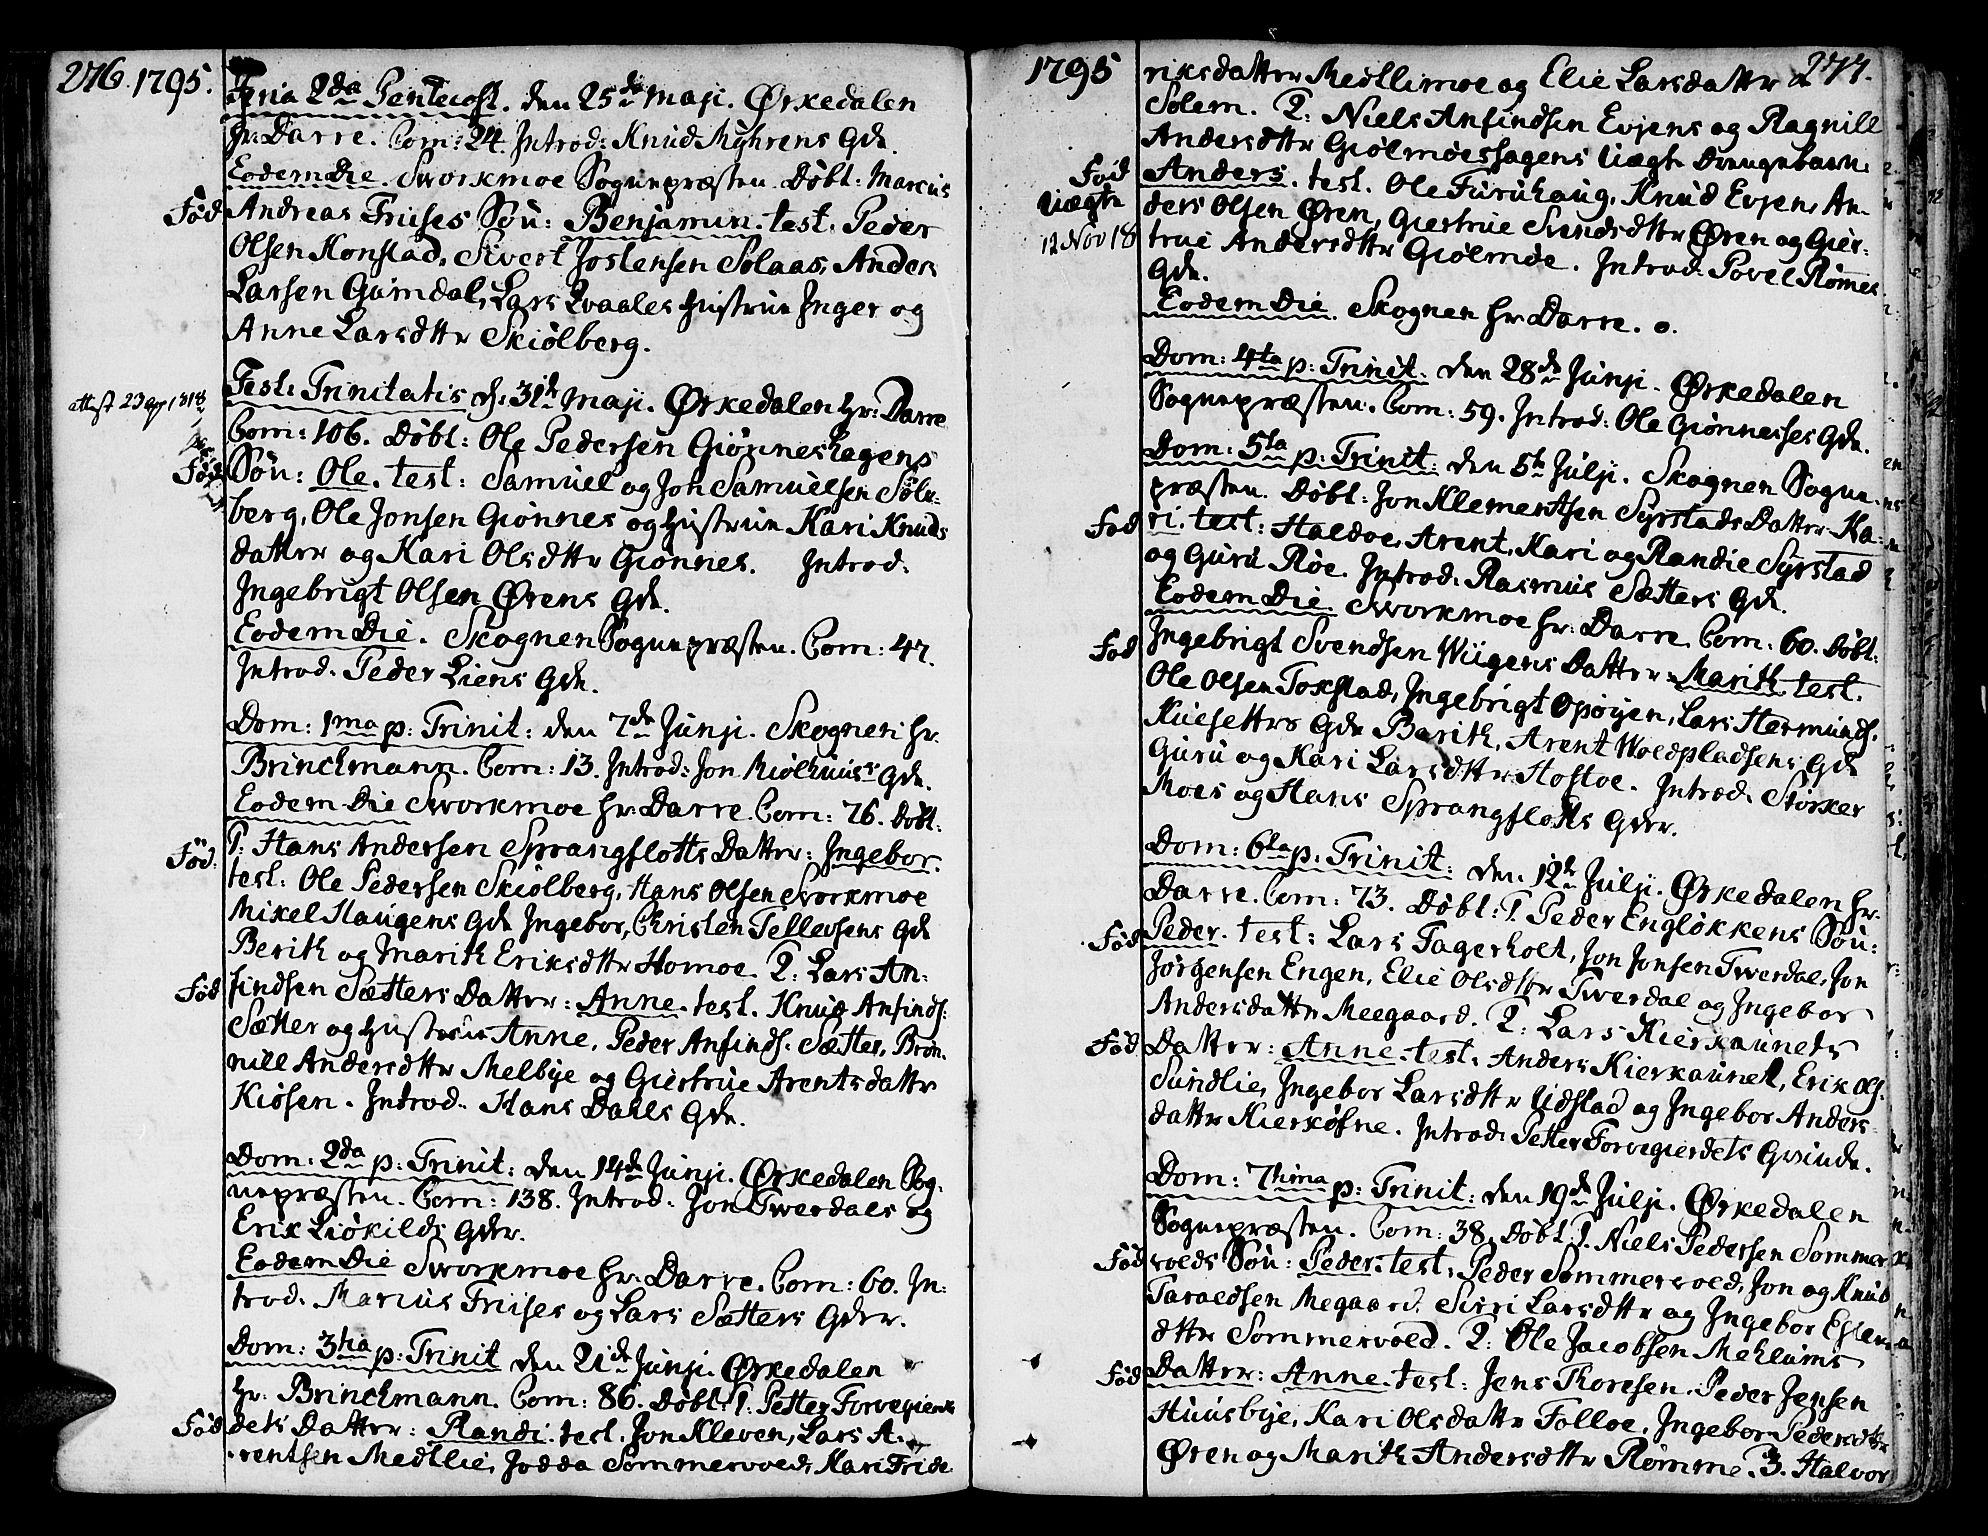 276. 1795.
Feria 2da Pentecost. den 25de Maji. Ørkedalen
Hr: Darre. Com: 24. Introd: Knud Myhrens Gdn.
Eodem Die. Sworkmoe Sognepræsten. Døbt: Marcus
Fød Andreas Friises Søn: Benjamin. test. Peder
Olsen Konstad, Sivert Jostensen Solaas, Anders
Larsen Gumdal, Lars Qvaales Hustrue Inger og
Anne Larsdttr Skiølberg.
Fest: Trinitatis d. 31te Maji. Ørkedalen Hr: Darre
attest 23 Apr 1818
Com: 106. Døbt: Ole Pedersen Giønneshagens
Fød Søn: Ole. test: Samuel og Jon Samuelsen Solberg,
berg, Ole Jonsen Giønnes og Hustrue Kari Knuds
datter og Kari Olsdttr Giønnes. Introd:
Ingebrigt Olsen Ørens Gdn.
Eodem Die. Skognen Sognepræsten. Com: 47.
Introd. Peder Liens Gdn.
Dom: 1ma p: Trinit: den 7de Junji. Skognen Hr.
Brinchmann. Com: 13. Introd: Jon Miølhuus Gdn.
Eodem Die Sworkmoe Hr: Darre. Com: 76. Døbt:
Fød. 1. Hans Andersen Sprangflotts Datter: Ingebor.
test: Ole Pedersen Skiølberg, Hans Olsen Sworkmoe
Mikel Haugens Gdn Ingebor, Christen Tellevsens Gdn
Berith og Marith Eriksdttr Homoe. 2: Lars An-
Fød findsen Sætters Datter: Anne. test. Knud Anfinds:
Sætter og Hustrue Anne, Peder Anfinds. Sætter, Brøn-
nill Andersdttr Melbye og Giertrue Arentsdatter
Kiøsen. Introd. Hans Dahls Gdn.
Dom. 2da p: Trinit: den 14de Junji. Ørkedalen Sog-
nepræsten. Com: 138. Introd. Jon Twerdals og
Erik Liøkilds Gdr.
Eodem Die Sworkmoe Hr: Darre. Com: 60. In-
trod. Marcus Friises og Lars Sætters Gdr.
Dom: 3tia p: Trinit den 21de Junji. Ørkedalen
Hr: Brinchmann. Com: 86. Døbt: 1. Petter Forvegierets
Fød dets Datter: Randi. test. Jon Kleven, Lars A-
rentsen Medtlie, Jodda Sommervoed, Kari Fride
1795
277.
riksdatter Medtlimoe og Elie Larsdatter
Solem. 2: Niels Anfindsen Evjens og Ragnill
Andersdttr Giølmoeshagens Uægte Drengebarn
Fød Uægte Anders. test. Ole Furuhaug, Knud Evjen, An-
12 Nov 18
ders Olsen Øren, Giertrue Svendsdttr Øren og Gier-
true Andersdttr Giølmoe. Introd. Povel Rømes
Gdn.
Eodem Die. Skognen Hr. Darre. o.
Dom: 4ta p: Trinit. den 28de Junji. Ørkedalen
Sognepræsten. Com: 59. Introd: Ole Giønneses Gdn.
Dom: 5ta p: Trinit: den 5te Julji. Skognen Sogne-
præsten. Døbt: Jon Klementsen Syrstads Datter Ka-
Fød ri. test: Haldoe, Arent, Kari og Randie Syrstad
og Guru Røe. Introd. Rasmus Sætters Gdn.
Eodem Die. Sworkmoe Hr: Darre. Com: 60. Døbt:
Fød Ingebrigt Svendsen Wiigens Datter: Marith. test.
Ole Olsen Toxstad, Ingebrigt Opøyen, Lars Hermunds.
Kuesetters Gdn Berith, Arent Woldpladsens Gdn
Guru og Kari Larsdttr Hostoe. Introd. Størker
Moes og Hans Sprangflotts Gdr.
Dom: 6ta p: Trinit: den 12te Julji. Ørkedalen Hr.
Darre. Com: 73. Døbt: 1. Peder Engløkkens Søn:
Fød Peder. test: Lars Fagerholt, Jon Jonsen Twerdal, Jon
Jørgensen Engen, Elie Olsdttr Twerdal og Ingebor
Andersdatter Meegaard. 2: Lars Kierkaunets
Fød Datter: Anne. test. Anders Kierkaunet, Erik Ols.
Sundlie, Ingebor Larsdttr Uidstad og Ingebor Anders-
datter Kierkøfne. Introd. Petter Forvegierdets Qvinde.
Dom: 7tima p: Trinit: den 19de Julji. Ørkedalen
Sognepræsten. Com: 38. Døbt 1. Niels Pedersen Sommer
Fød voeds Søn: Peder. test. Peder Sommervoed, Jon og Knud
Taraldsen Megaard, Sirri Larsdttr og Ingebor Esten
dttr Sommervold. 2: Ole Jacobsen Mehlums
Fød Datter: Anne. test: Jens Thoresen, Peder Jensen
Huusbye, Kari Olsdatter Folloe, Ingebor Pedersdttr
Øren og Marith Andersdttr Rømme. 3. Halvor